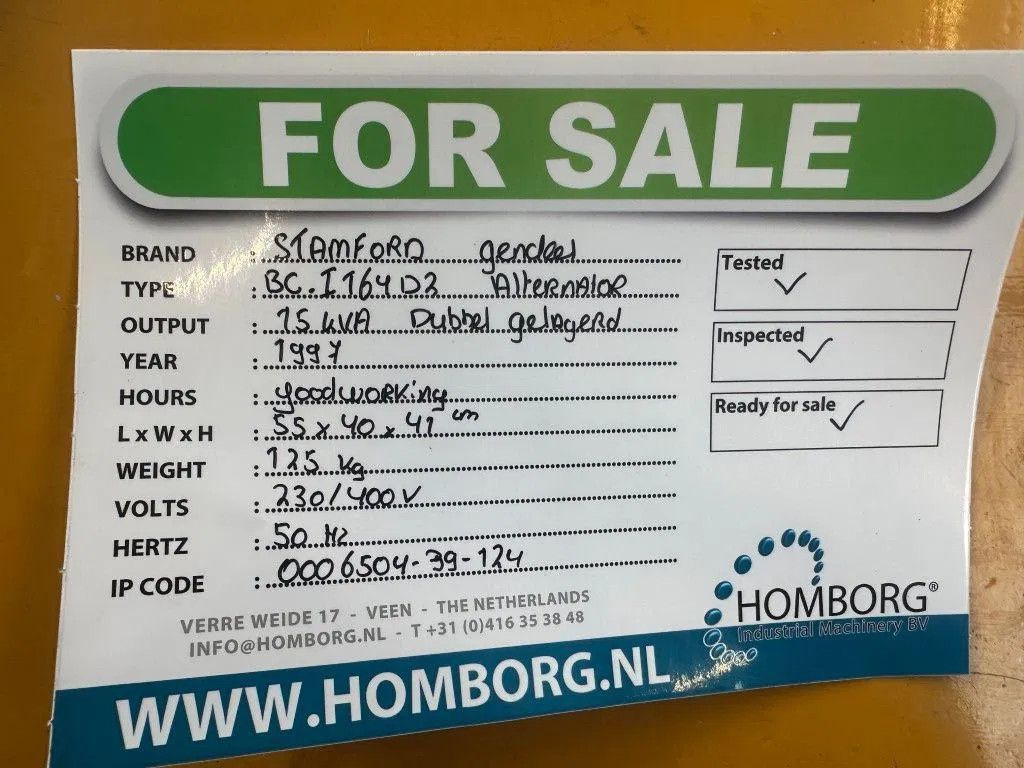 FOR SALE
BRAND : STAMFORD gendeel
TYPE : BC.I164D2 Alternator
OUTPUT : 15 kVA Dubbel gelagerd
YEAR : 1997
HOURS : goodworking
L x W x H : 55 x 40 x 41 cm
WEIGHT : 125 kg
VOLTS : 230/400V
HERTZ : 50 Hz
IP CODE : 0006504-39-124
Tested ✓
Inspected ✓
Ready for sale ✓
VERRE WEIDE 17 - VEEN - THE NETHERLANDS
INFO@HOMBORG.NL - T +31 (0)416 35 38 48
HOMBORG®
Industrial Machinery BV
WWW.HOMBORG.NL